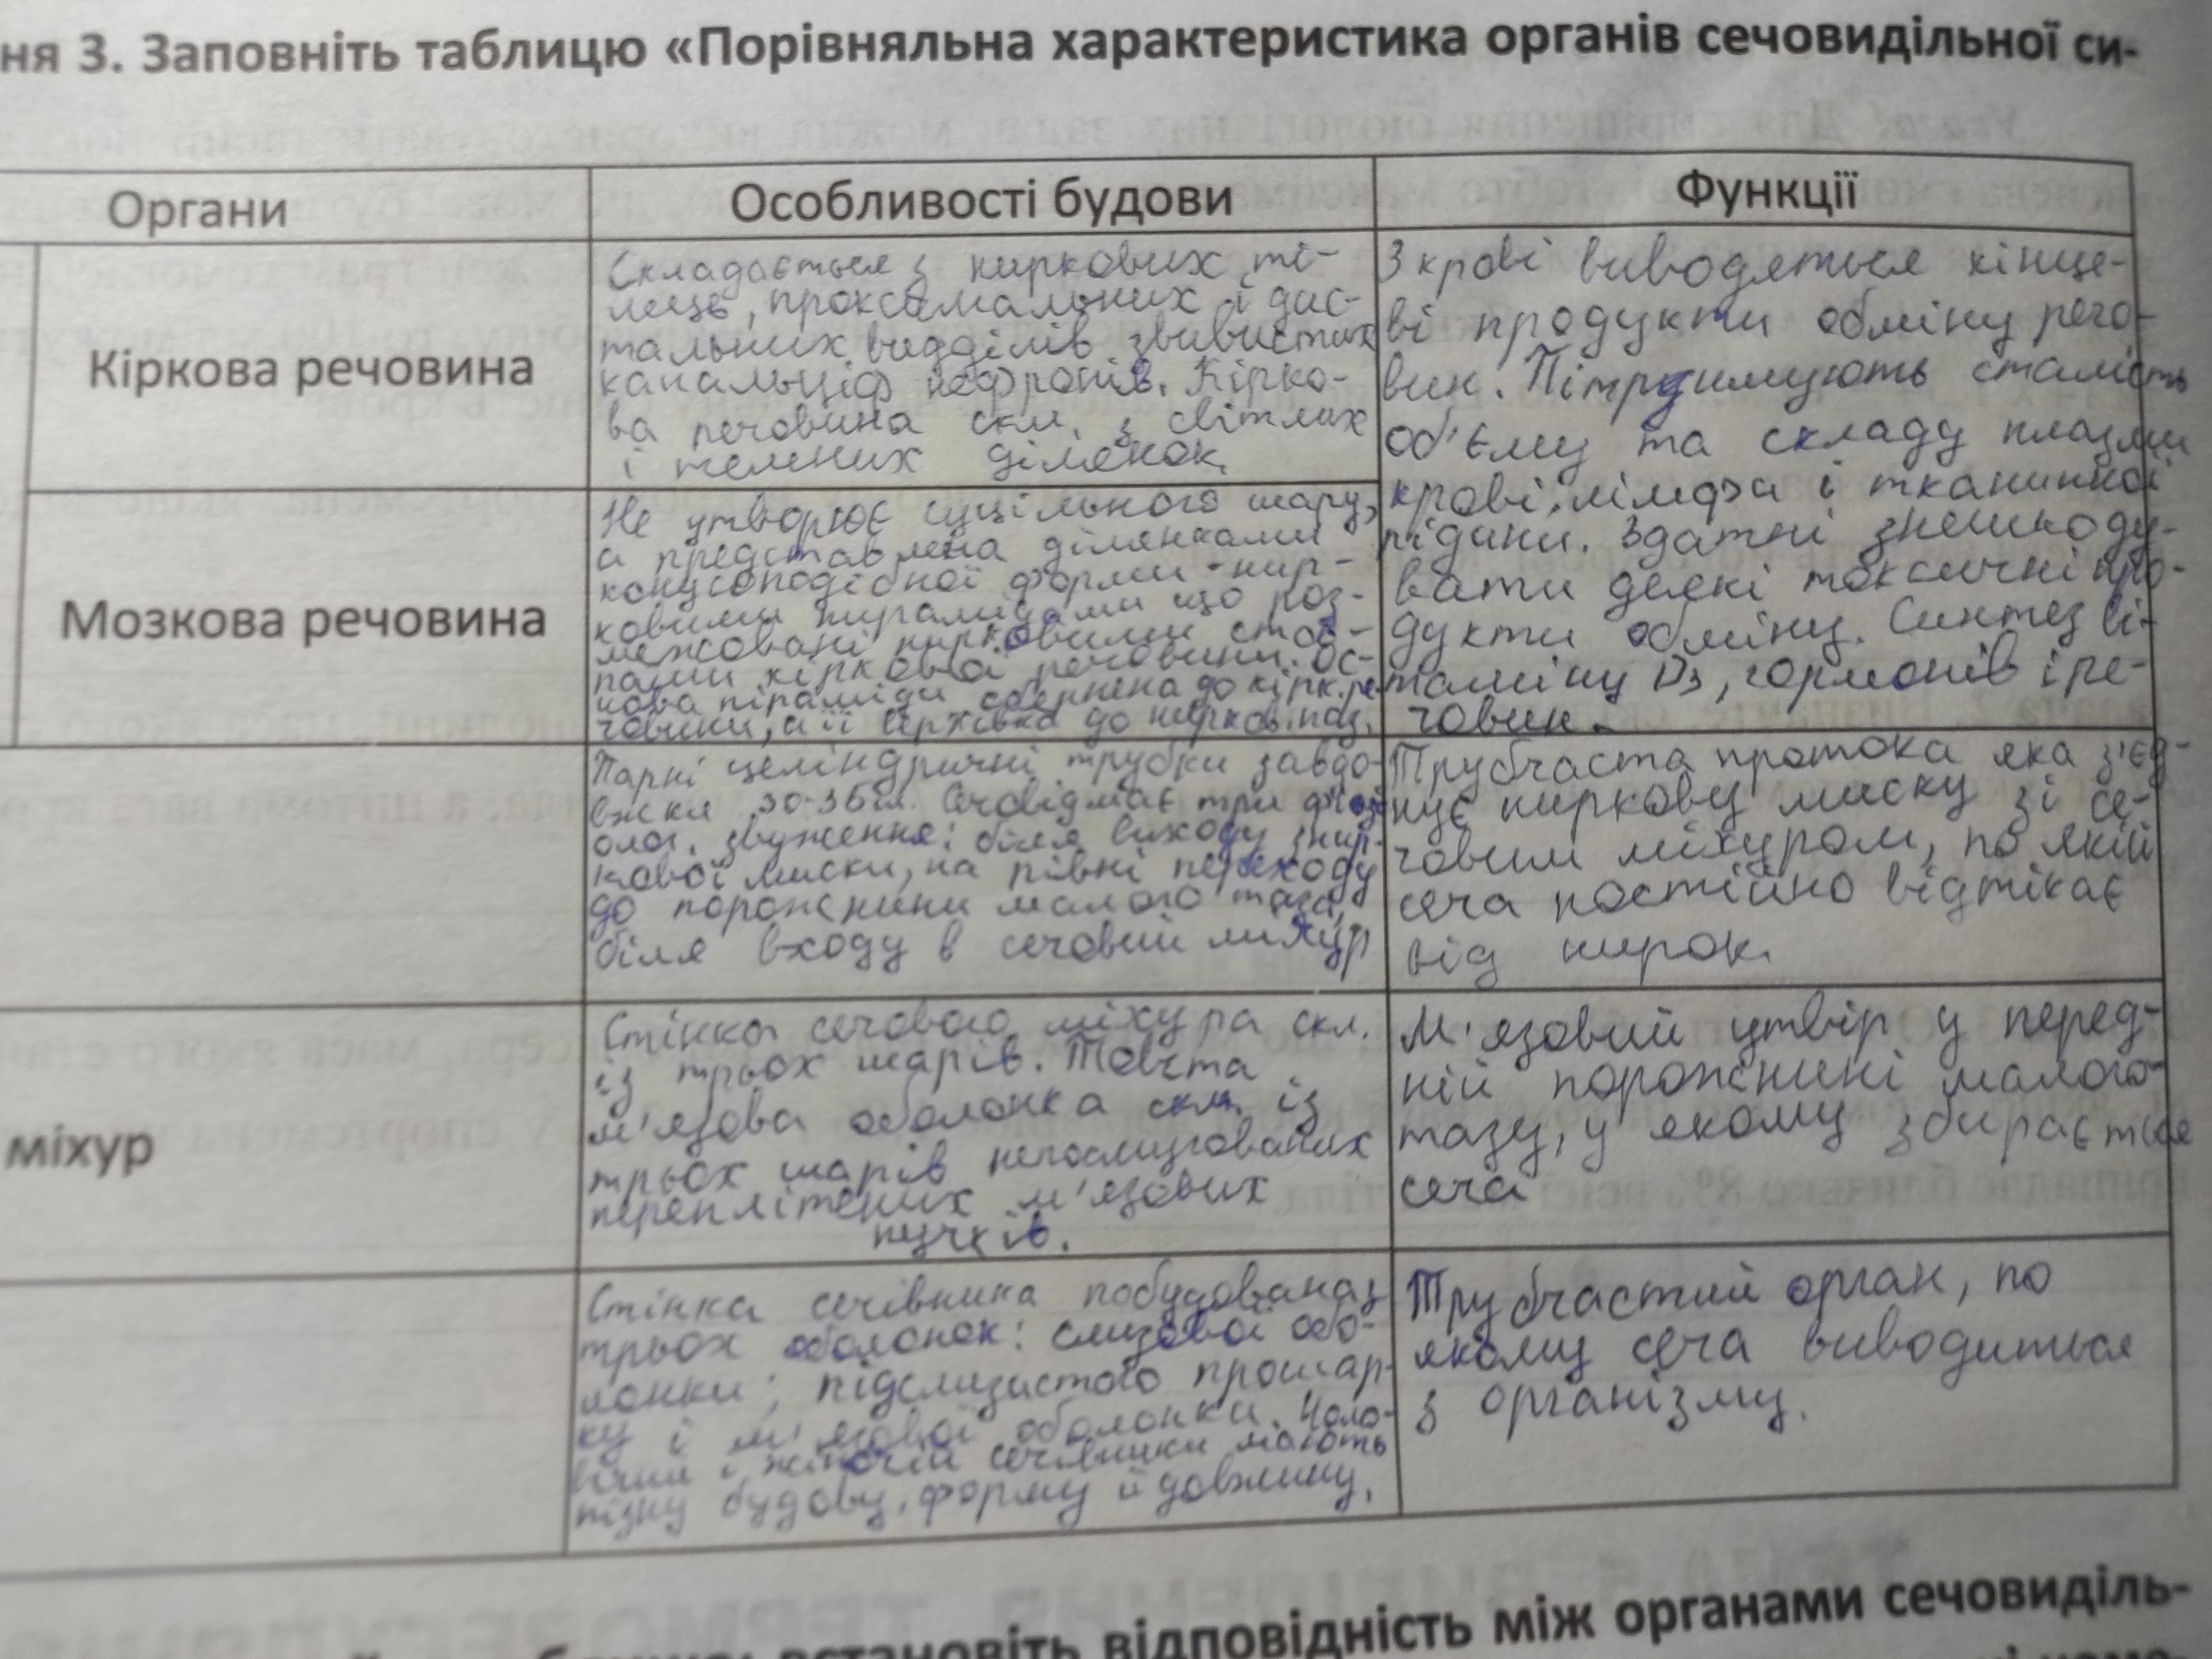 ня 3. Заповніть таблицю «Порівняльна характеристика органів сечовидільної си-
Органи
Особливості будови
Функції
Кіркова речовина
Складається з ниркових ті-
лець, проксимальних і дис-
тальних відділів звивистих
канальців нефронів. Кірко-
ва речовина скл. з світлих
і темних ділянок.
З крові виводяться кінце-
ві продукти обміну речо-
вин. Пітримують сталість
об'єму та складу плазми
крові, лімфи і тканинної
рідини. Здатні знешкоду-
вати деякі токсичні про-
дукти обміну. Синтез ві-
таміну D3, гормонів і ре-
човин.
Мозкова речовина
Не утворює суцільного шару,
а представлена ділянками
конусоподібної форми - нир-
ковими пирамидами що роз-
межовані нирковими стов-
пами кіркової речовини. Ос-
нова піраміди обернена до кірк. ре-
човини, а її верхівка до нирков. паз.
Парні целіндричні трубки завдо-
вжки 30-35см. Сечовід має три фізі
олог. звуження: біля виходу з нир-
кової миски, на рівні переходу
до порожнини малого таза,
біля входу в сечовий михур
Трубчаста протока яка з'єд-
нує ниркову миску зі се-
човим міхуром, по якій
сеча постійно відтікає
від нирок.
міхур
Стінка сечового міхура скл.
із трьох шарів. Товста
м'язова оболонка скл. із
трьох шарів непосмугованих
переплітених м'язових
пучків.
М'язовий утвір у перед-
ній порожнині малого
тазу, у якому збирається
сеча
Стінка сечівника побудована з
трьох оболонок: слизової обо-
лонки; підслизистого прошар-
ку і м'язової оболонки. Чоло-
вічий і жіночій сечівники мають
різну будову, форму й довжину.
Трубчастий орган, по
якому сеча виводиться
з організму.
встановіть відповідність між органами сечовиділь-